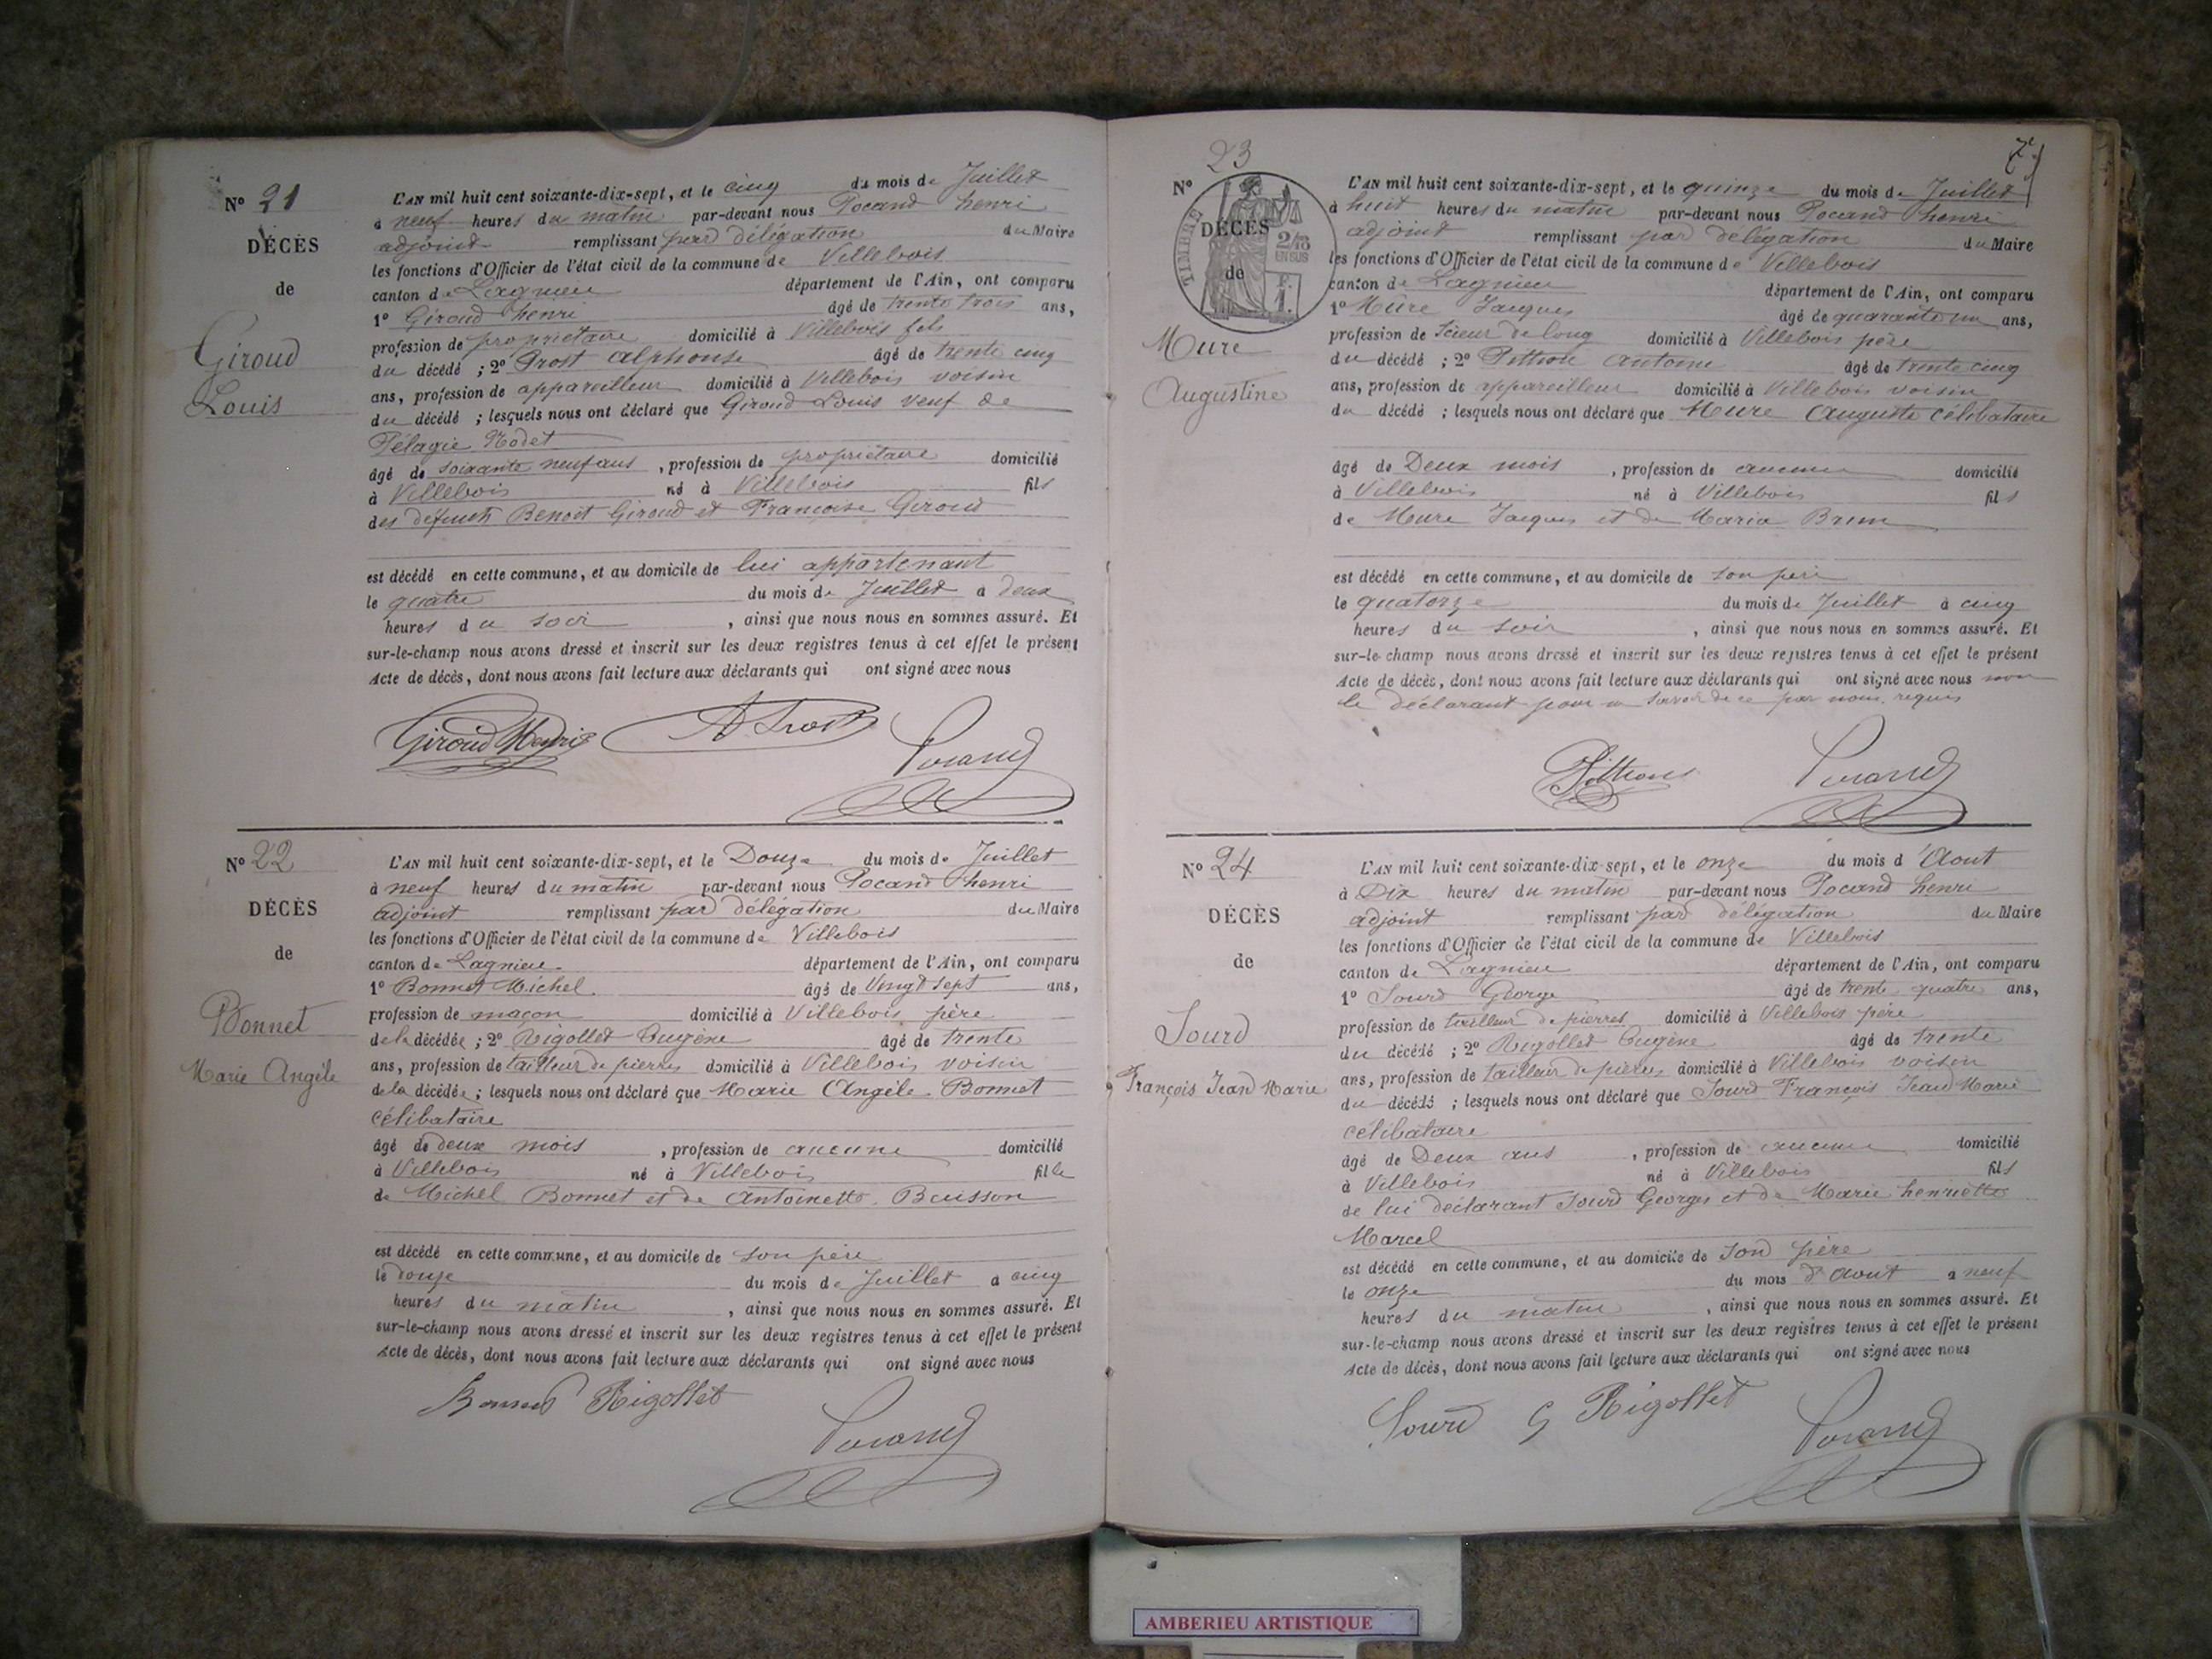 N° 21
DÉCÈS
de
Giroud
Louis
L'AN mil huit cent soixante-dix-sept, et le cinq du mois de Juillet
à neuf heures du matin par-devant nous Pocand henri
adjoint remplissant par délégation du Maire
les fonctions d'Officier de l'état civil de la commune de Villebois
canton de Lagnieu département de l'Ain, ont comparu
1° Giroud henri âgé de trente trois ans,
profession de propriétaire domicilié à Villebois fils
du décédé ; 2° Prost alphonse âgé de trente cinq
ans, profession de appareilleur domicilié à Villebois voisin
du décédé ; lesquels nous ont déclaré que Giroud Louis veuf de
Pélagie Rodet
âgé de soixante neuf ans , profession de propriétaire domicilié
à Villebois né à Villebois fils
des défunts Benoit Giroud et Francoise Giroud
est décédé en cette commune, et au domicile de lui appartenant
le quatre du mois de Juillet à deux
heures du soir , ainsi que nous nous en sommes assuré. Et
sur-le-champ nous avons dressé et inscrit sur les deux registres tenus à cet effet le présent
Acte de décès, dont nous avons fait lecture aux déclarants qui ont signé avec nous
Giroud Henri A Prost Pocand
N° 22
DÉCÈS
de
Bonnet
Marie Angèle
L'AN mil huit cent soixante-dix-sept, et le Douze du mois de Juillet
à neuf heures du matin par-devant nous Pocand henri
adjoint remplissant par délégation du Maire
les fonctions d'Officier de l'état civil de la commune de Villebois
canton de Lagnieu département de l'Ain, ont comparu
1° Bonnet Michel âgé de Vingt sept ans,
profession de maçon domicilié à Villebois père
de la décédée ; 2° Rigollet Eugène âgé de trente
ans, profession de tailleur de pierres domicilié à Villebois voisin
de la décédée ; lesquels nous ont déclaré que Marie Angèle Bonnet
célibataire
âgé de deux mois , profession de aucune domicilié
à Villebois né à Villebois fille
de Michel Bonnet et de Antoinette Buisson
est décédé en cette commune, et au domicile de son père
le douze du mois de Juillet à cinq
heures du matin , ainsi que nous nous en sommes assuré. Et
sur-le-champ nous avons dressé et inscrit sur les deux registres tenus à cet effet le présent
Acte de décès, dont nous avons fait lecture aux déclarants qui ont signé avec nous
Bonnet Rigollet
Pocand
7e
23
N°
TIMBRE
2/10
EN SUS
F.
1.
DÉCÈS
de
Mure
Augustine
L'AN mil huit cent soixante-dix-sept, et le quinze du mois de Juillet
à huit heures du matin par-devant nous Pocand henri
adjoint remplissant par délégation du Maire
les fonctions d'Officier de l'état civil de la commune de Villebois
canton de Lagnieu département de l'Ain, ont comparu
1° Mure Jacques âgé de quarante un ans,
profession de Scieur de long domicilié à Villebois père
du décédé ; 2° Pittion Antoine âgé de trente cinq
ans, profession de appareilleur domicilié à Villebois voisin
du décédé ; lesquels nous ont déclaré que Mure Auguste célibataire
âgé de Deux mois , profession de aucune domicilié
à Villebois né à Villebois fils
de Mure Jacques et de Maria Brun
est décédé en cette commune, et au domicile de son père
le quatorze du mois de Juillet à cinq
heures du soir , ainsi que nous nous en sommes assuré. Et
sur-le-champ nous avons dressé et inscrit sur les deux registres tenus à cet effet le présent
Acte de décès, dont nous avons fait lecture aux déclarants qui ont signé avec nous non
le déclarant pour ne savoir de ce par nous requis
Pittion Pocand
N° 24
DÉCÈS
de
Sourd
François Jean Marie
L'AN mil huit cent soixante-dix-sept, et le onze du mois d'Aout
à Dix heures du matin par-devant nous Pocand henri
adjoint remplissant par délégation du Maire
les fonctions d'Officier de l'état civil de la commune de Villebois
canton de Lagnieu département de l'Ain, ont comparu
1° Sourd George âgé de trente quatre ans,
profession de tailleur de pierres domicilié à Villebois père
du décédé ; 2° Rigollet Eugène âgé de trente
ans, profession de tailleur de pierres domicilié à Villebois voisin
du décédé ; lesquels nous ont déclaré que Sourd François Jean Marie
célibataire
âgé de Deux ans , profession de aucune domicilié
à Villebois né à Villebois fils
de lui déclarant Sourd Georges et de Marie henriette
Marcel
est décédé en cette commune, et au domicile de son père
le onze du mois d'Aout à neuf
heures du matin , ainsi que nous nous en sommes assuré. Et
sur-le-champ nous avons dressé et inscrit sur les deux registres tenus à cet effet le présent
Acte de décès, dont nous avons fait lecture aux déclarants qui ont signé avec nous
Sourd G Rigollet Pocand
AMBERIEU ARTISTIQUE